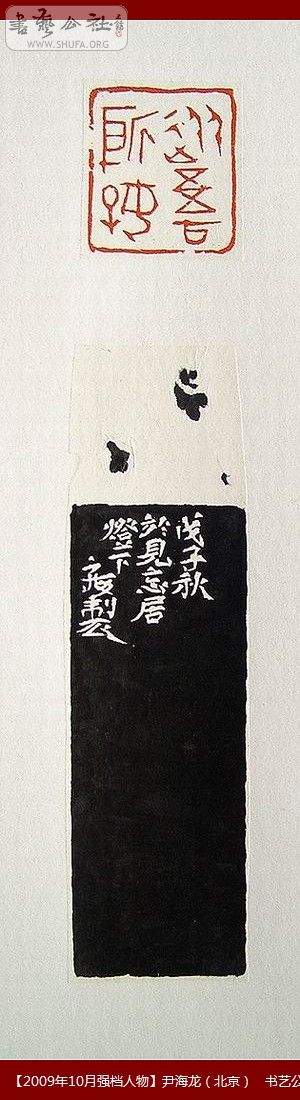 書藝公社
www.SHUFA.ORG
從吾
所好
戊子秋
於見忘居
燈下
海製
【2009年10月强档人物】尹海龙（北京） 书艺公